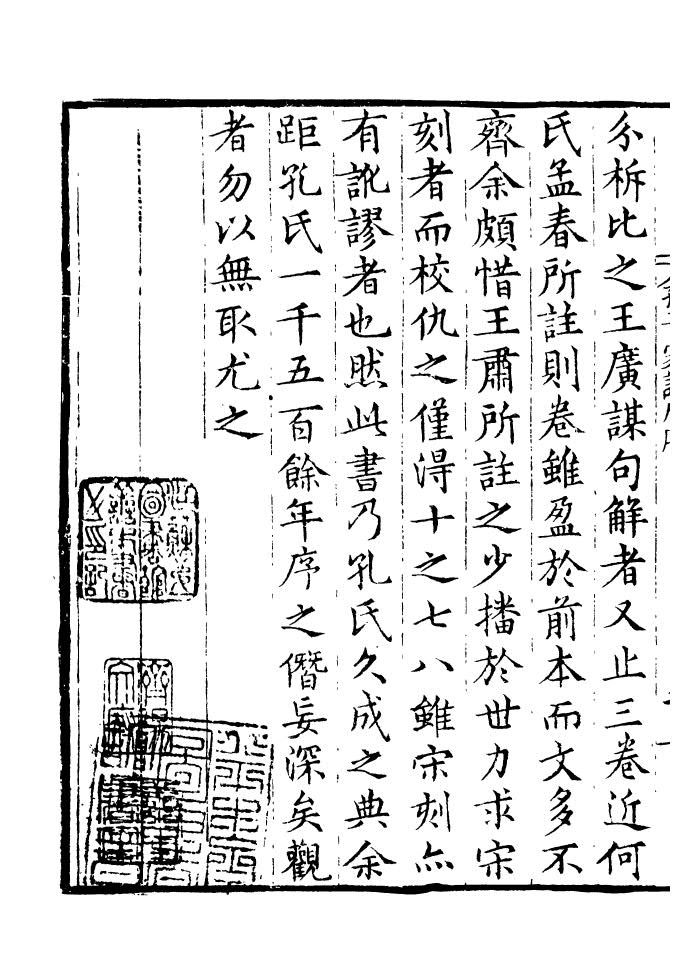 分析比之王廣謀句解者又止三卷近何
氏孟春所註則卷雖盈於前本而文多不
齊余頗惜王肅所註之少播於世力求宋
刻者而校仇之僅得十之七八雖宋刻亦
有訛謬者也然此書乃孔氏久成之典余
距孔氏一千五百餘年序之僭妄深矣觀
者勿以無取尤之